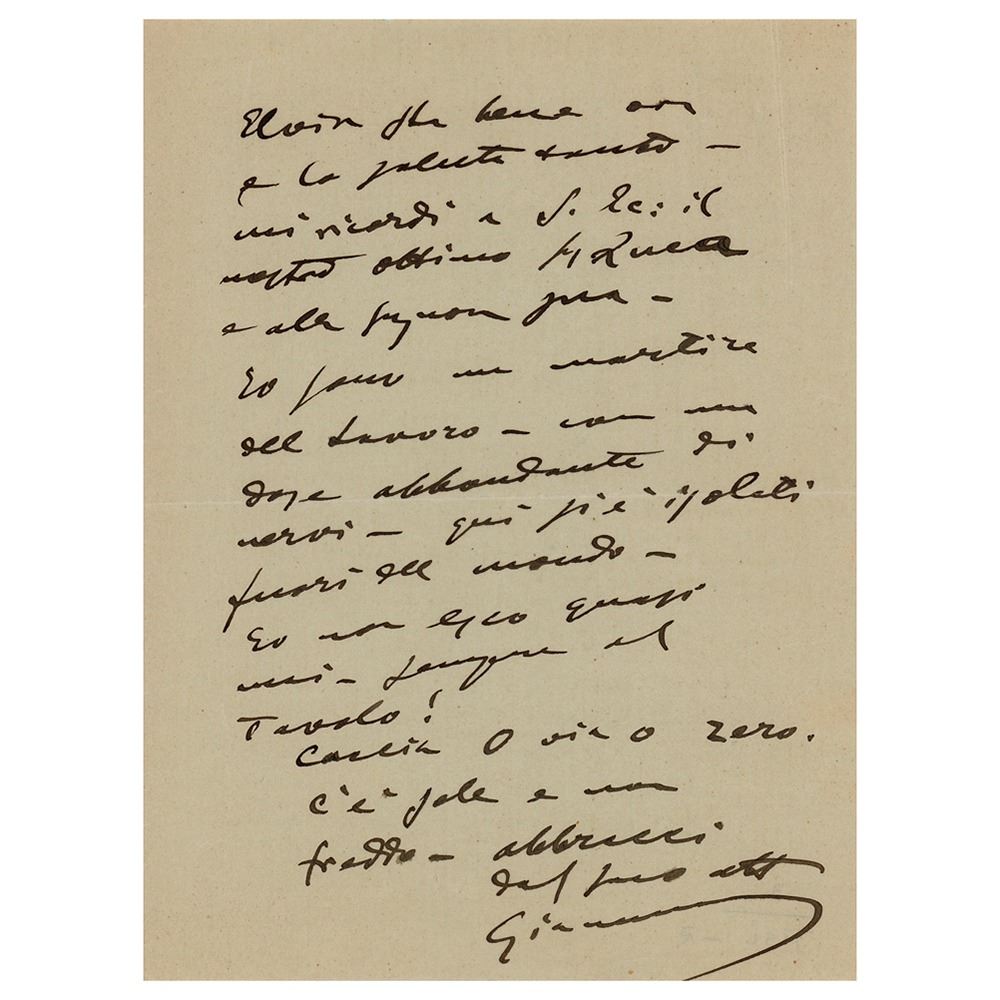 Elvira sta bene ora
e la saluta tanto –
mi ricordi a S. Ec: il
nostro ottimo
e alla signora sua –
Io sono un martire
del lavoro – con una
dose abbondante di
nervi – qui si è isolati
fuori del mondo –
Io non esco quasi
mai – sempre al
Tavolo!
Caccia 0 via 0 zero.
C'è sole e non
freddo – abbracci
dal suo aff
Giacomo